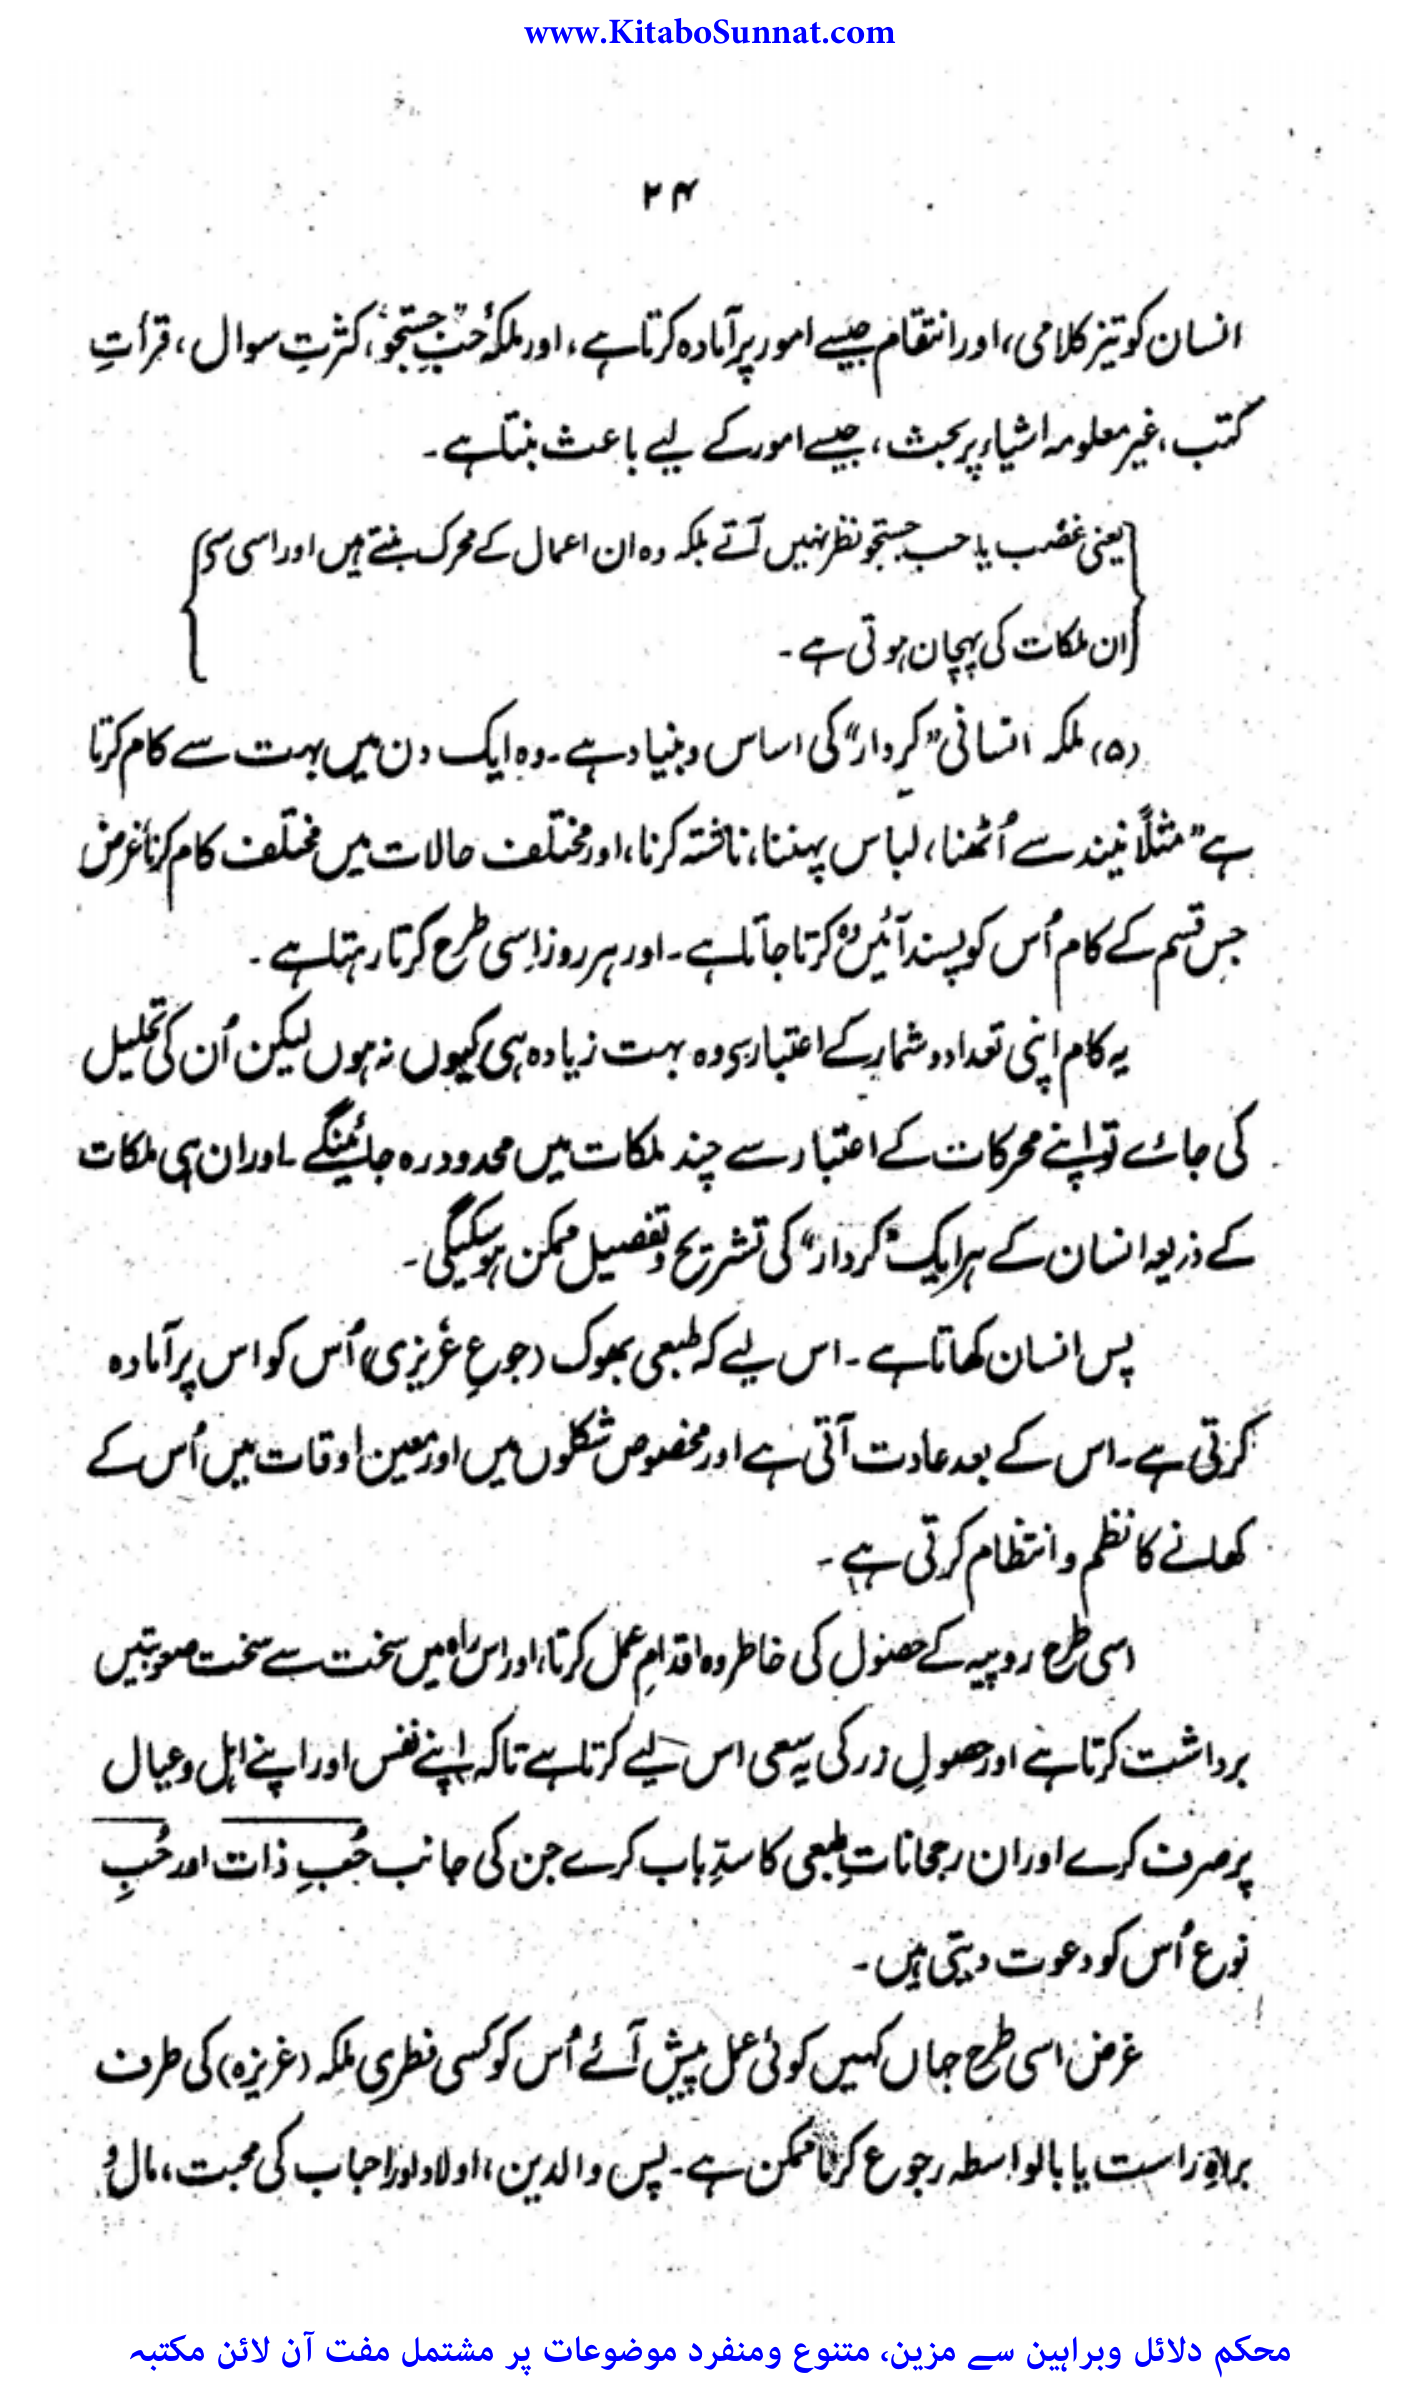 www.KitaboSunnat.com
۲۴
انسان کو تیز کلامی، اور انتقام جیسے امور پر آمادہ کرتا ہے، اور ملکۂ "حبِّ جستجو"، کثرتِ سوال، قرأتِ
کتب، غیر معلومہ اشیاء پر بحث، جیسے امور کے لیے باعث بنتا ہے۔
{یعنی غضب یا حب جستجو نظر نہیں آتے بلکہ وہ ان اعمال کے محرک بنتے ہیں اور اسی سی
ان ملکات کی پہچان ہوتی ہے۔}
(۵) ملکہ انسانی "کردار" کی اساس و بنیاد ہے۔ وہ ایک دن میں بہت سے کام کرتا
ہے "مثلاً نیند سے اُٹھنا، لباس پہننا، ناشتہ کرنا، اور مختلف حالات میں مختلف کام کرنا" غرض
جس قسم کے کام اُس کو پسند آئیں وہ کرتا جاتا ہے۔ اور ہر روز اِسی طرح کرتا رہتا ہے۔
یہ کام اپنی تعداد و شمار کے اعتبار سی وہ بہت زیادہ ہی کیوں نہ ہوں لیکن اُن کی تحلیل
کی جائے تو اپنے محرکات کے اعتبار سے چند ملکات میں محدود رہ جائینگے۔ اور ان ہی ملکات
کے ذریعہ انسان کے ہر ایک "کردار" کی تشریح و تفصیل ممکن ہو سکیگی۔
پس انسان کھاتا ہے۔ اس لیے کہ طبعی بھوک (جوعِ غریزی) اُس کو اس پر آمادہ
کرتی ہے۔ اس کے بعد عادت آتی ہے اور مخصوص شکلوں میں اور معین اوقات میں اُس کے
کھانے کا نظم و انتظام کرتی ہے۔
اسی طرح روپیہ کے حصول کی خاطر وہ اقدامِ عمل کرتا، اور اس راہ میں سخت سے سخت صعوبتیں
برداشت کرتا ہے اور حصولِ زر کی یہ سعی اس لیے کرتا ہے تاکہ اپنے نفس اور اپنے اہل و عیال
پر صرف کرے اور ان رجحاناتِ طبعی کا سدِّ باب کرے جن کی جانب حُبِ ذات اور حُبِ
نوع اُس کو دعوت دیتی ہیں۔
غرض اسی طرح جہاں کہیں کوئی عمل پیش آئے اُس کو کسی فطری ملکہ (غریزہ) کی طرف
براہِ راست یا بالواسطہ رجوع کرنا ممکن ہے۔ پس والدین، اولاد اور احباب کی محبت، مال و
محکم دلائل وبراہین سے مزین، متنوع ومنفرد موضوعات پر مشتمل مفت آن لائن مکتبہ